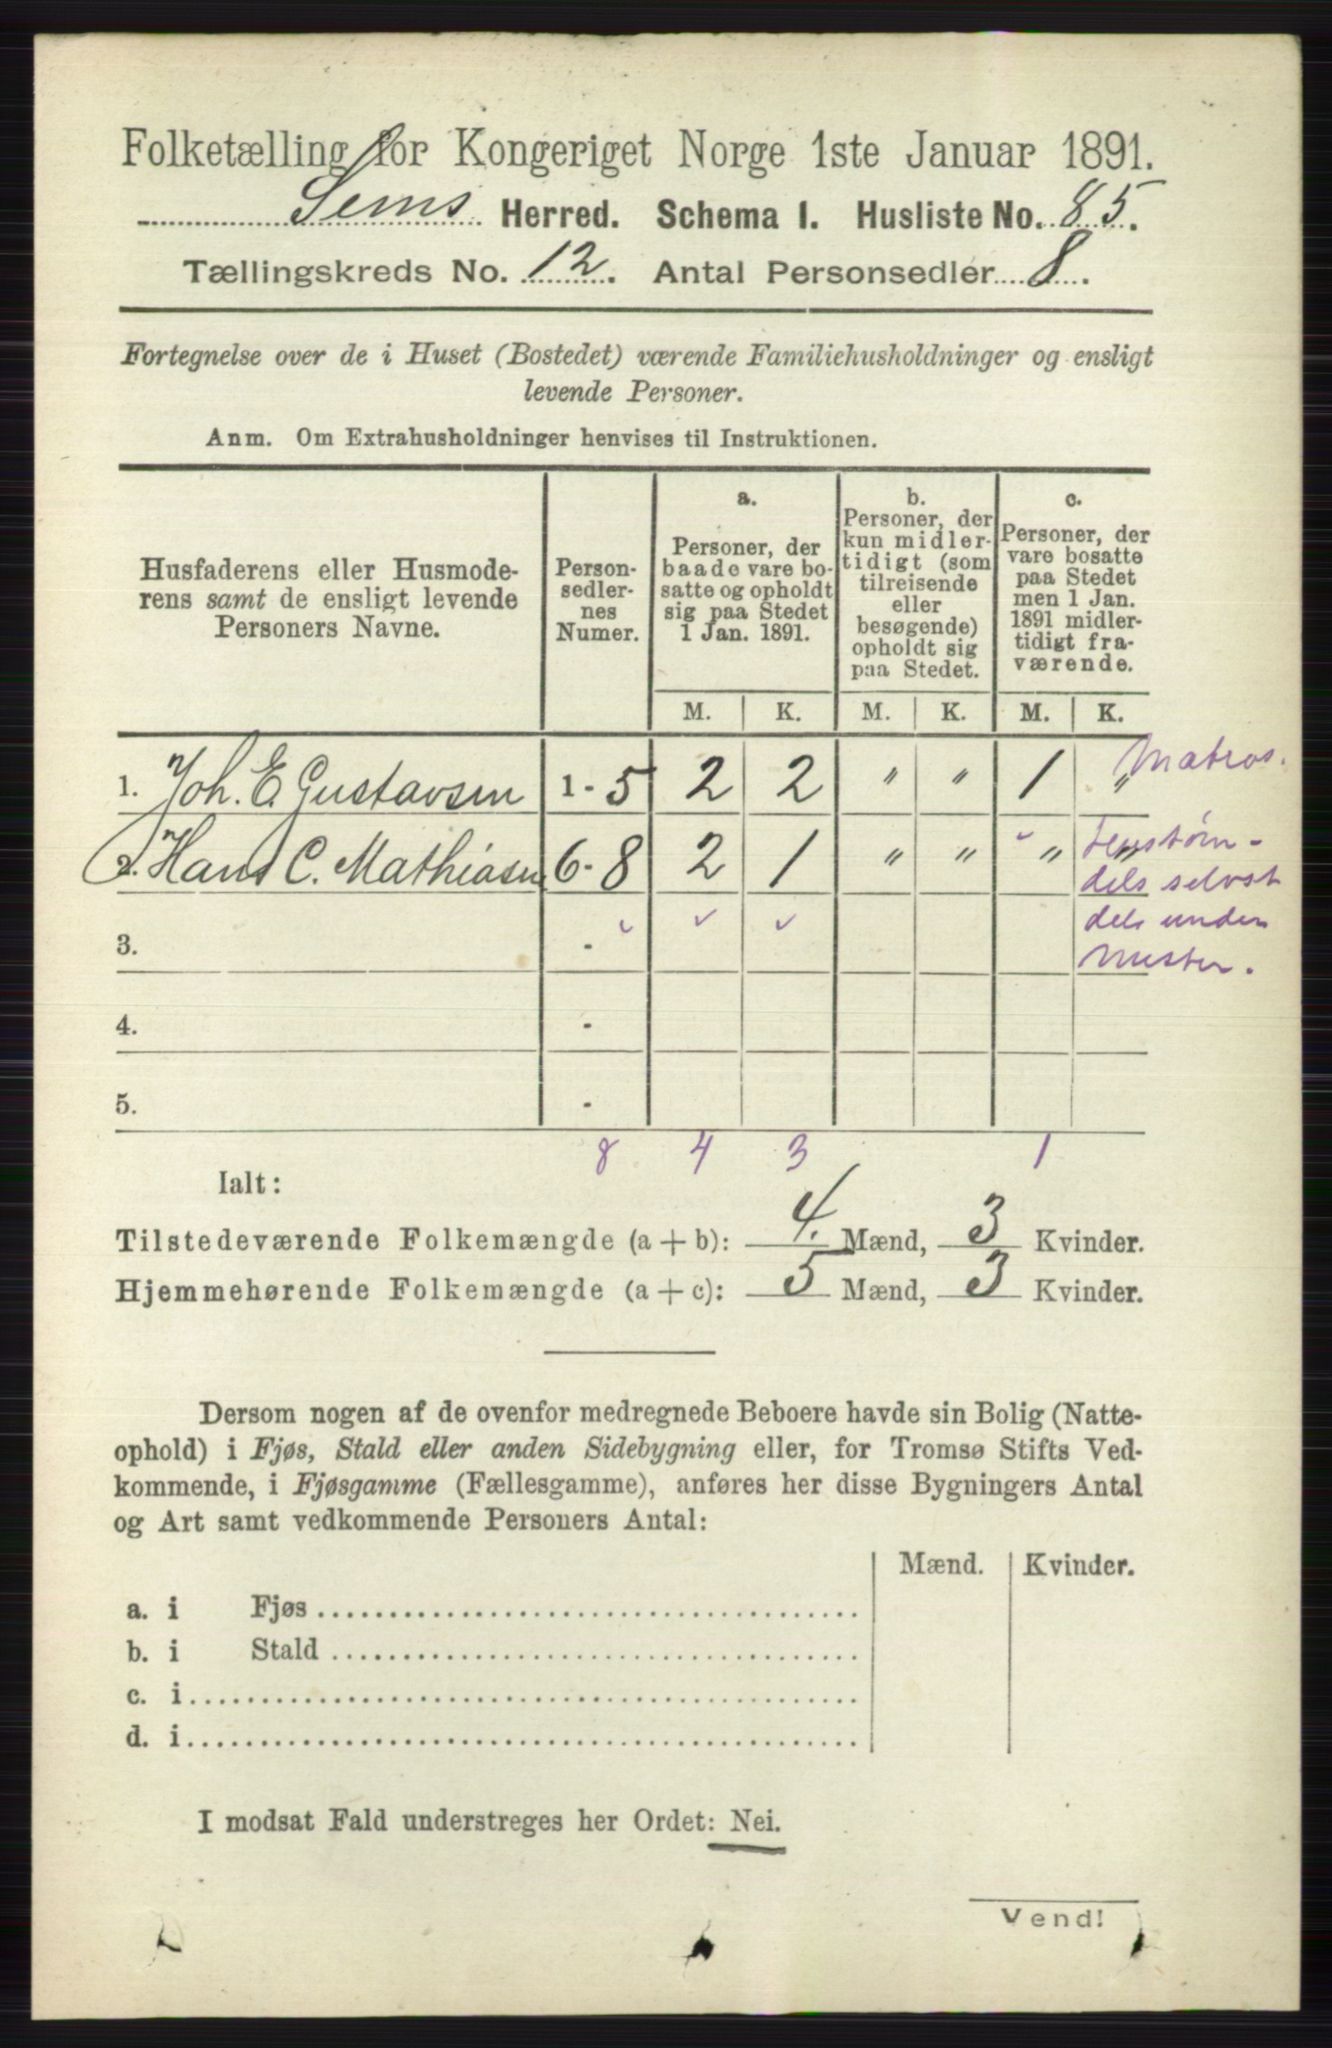 Folketælling for Kongeriget Norge 1ste Januar 1891.
Sems Herred. Schema I. Husliste No. 85.
Tællingskreds No. 12. Antal Personsedler 8.
Fortegnelse over de i Huset (Bostedet) værende Familiehusholdninger og ensligt
levende Personer.
Anm. Om Extrahusholdninger henvises til Instruktionen.
Husfaderens eller Husmode-
rens samt de ensligt levende
Personers Navne.
Person-
sedler-
nes
Numer.
a.
Personer, der
baade vare bo-
satte og opholdt
sig paa Stedet
1 Jan. 1891.
b.
Personer, der
kun midler-
tidigt (som
tilreisende
eller
besøgende)
opholdt sig
paa Stedet.
c.
Personer, der
vare bosatte
paa Stedet
men 1 Jan.
1891 midler-
tidigt fra-
værende.
M. K. M. K. M. K.
1. Joh. E. Gustavsen 1 - 5 2 2 " " 1 " Matros.
2. Hans C. Mathiasen 6 - 8 2 1 " " " "
dels selvst
dels under
Mester.
3. -
4. -
5. -
8 4 3 1
Ialt:
Tilstedeværende Folkemængde (a + b): 4. Mænd, 3 Kvinder.
Hjemmehørende Folkemængde (a + c): 5 Mænd, 3 Kvinder.
Dersom nogen af de ovenfor medregnede Beboere havde sin Bolig (Natte-
ophold) i Fjøs, Stald eller anden Sidebygning eller, for Tromsø Stifts Ved-
kommende, i Fjøsgamme (Fællesgamme), anføres her disse Bygningers Antal
og Art samt vedkommende Personers Antal:
Mænd. Kvinder.
a. i Fjøs
b. i Stald
c. i
d. i
I modsat Fald understreges her Ordet: Nei.
Vend!